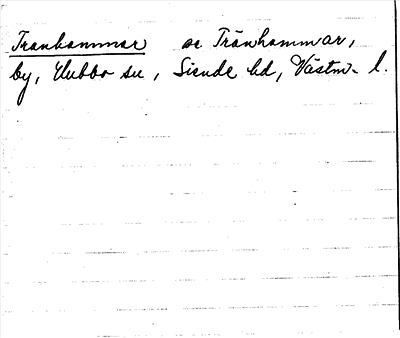 Tranhammar se Trånhammar,
by, Hubbo sn, Siende hd, Västm. l.